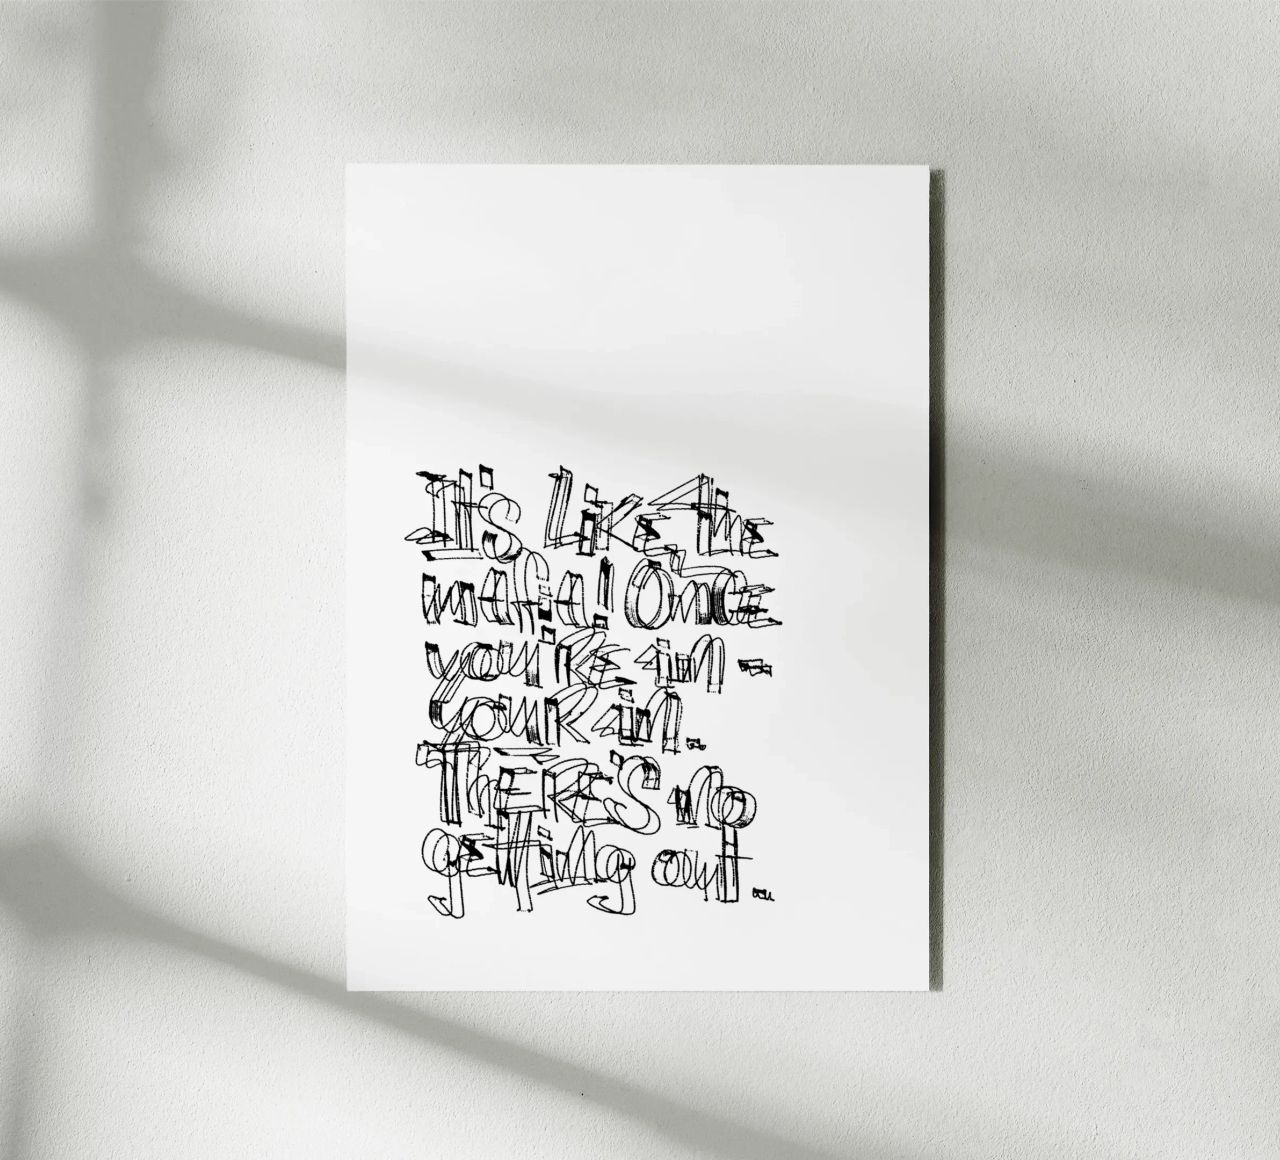 It's Like the
mafia! Once
you're in -
your in.
There's no
getting out.